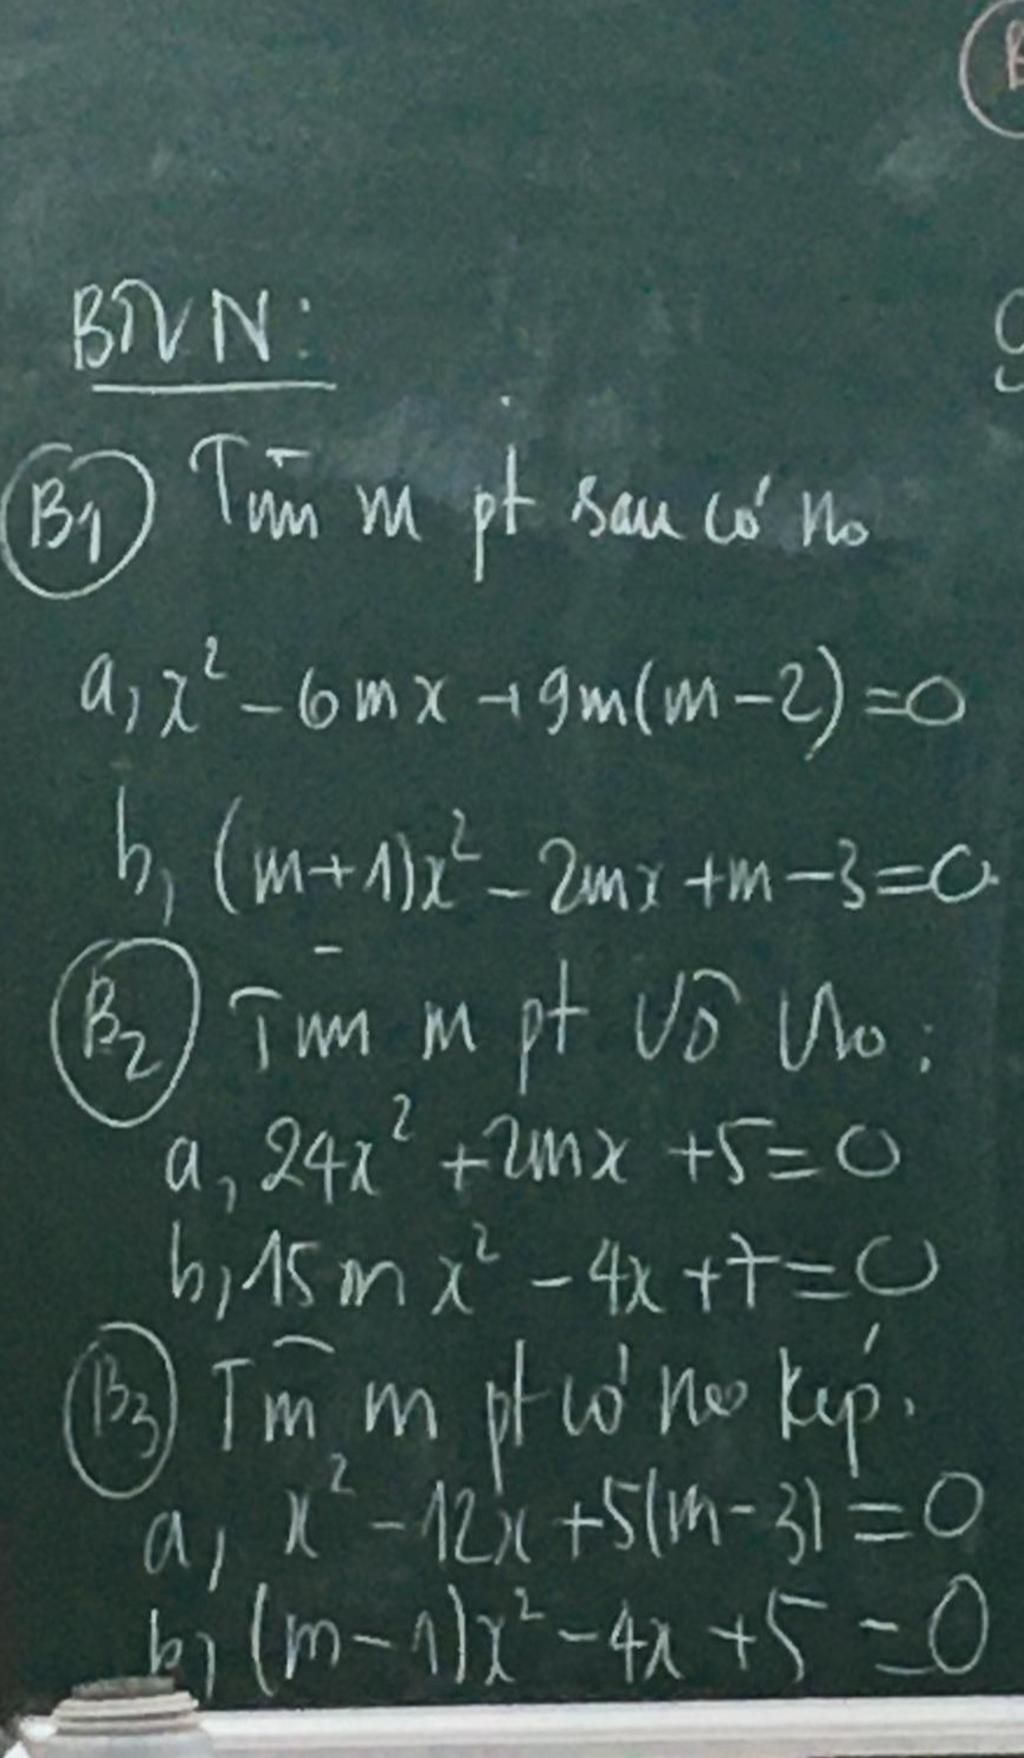 BTVN:
B1 Tìm m pt sau có no
a, x² - 6mx + 9m(m-2)=0
b, (m+1)x² - 2mx +m-3=0
B2 Tìm m pt vô no:
a, 24x² +2mx +5=0
b, 15mx² - 4x +7=0
B3 Tìm m pt có no kép.
a, x² - 12x +5(m-3) =0
b, (m-1)x² - 4x +5 =0